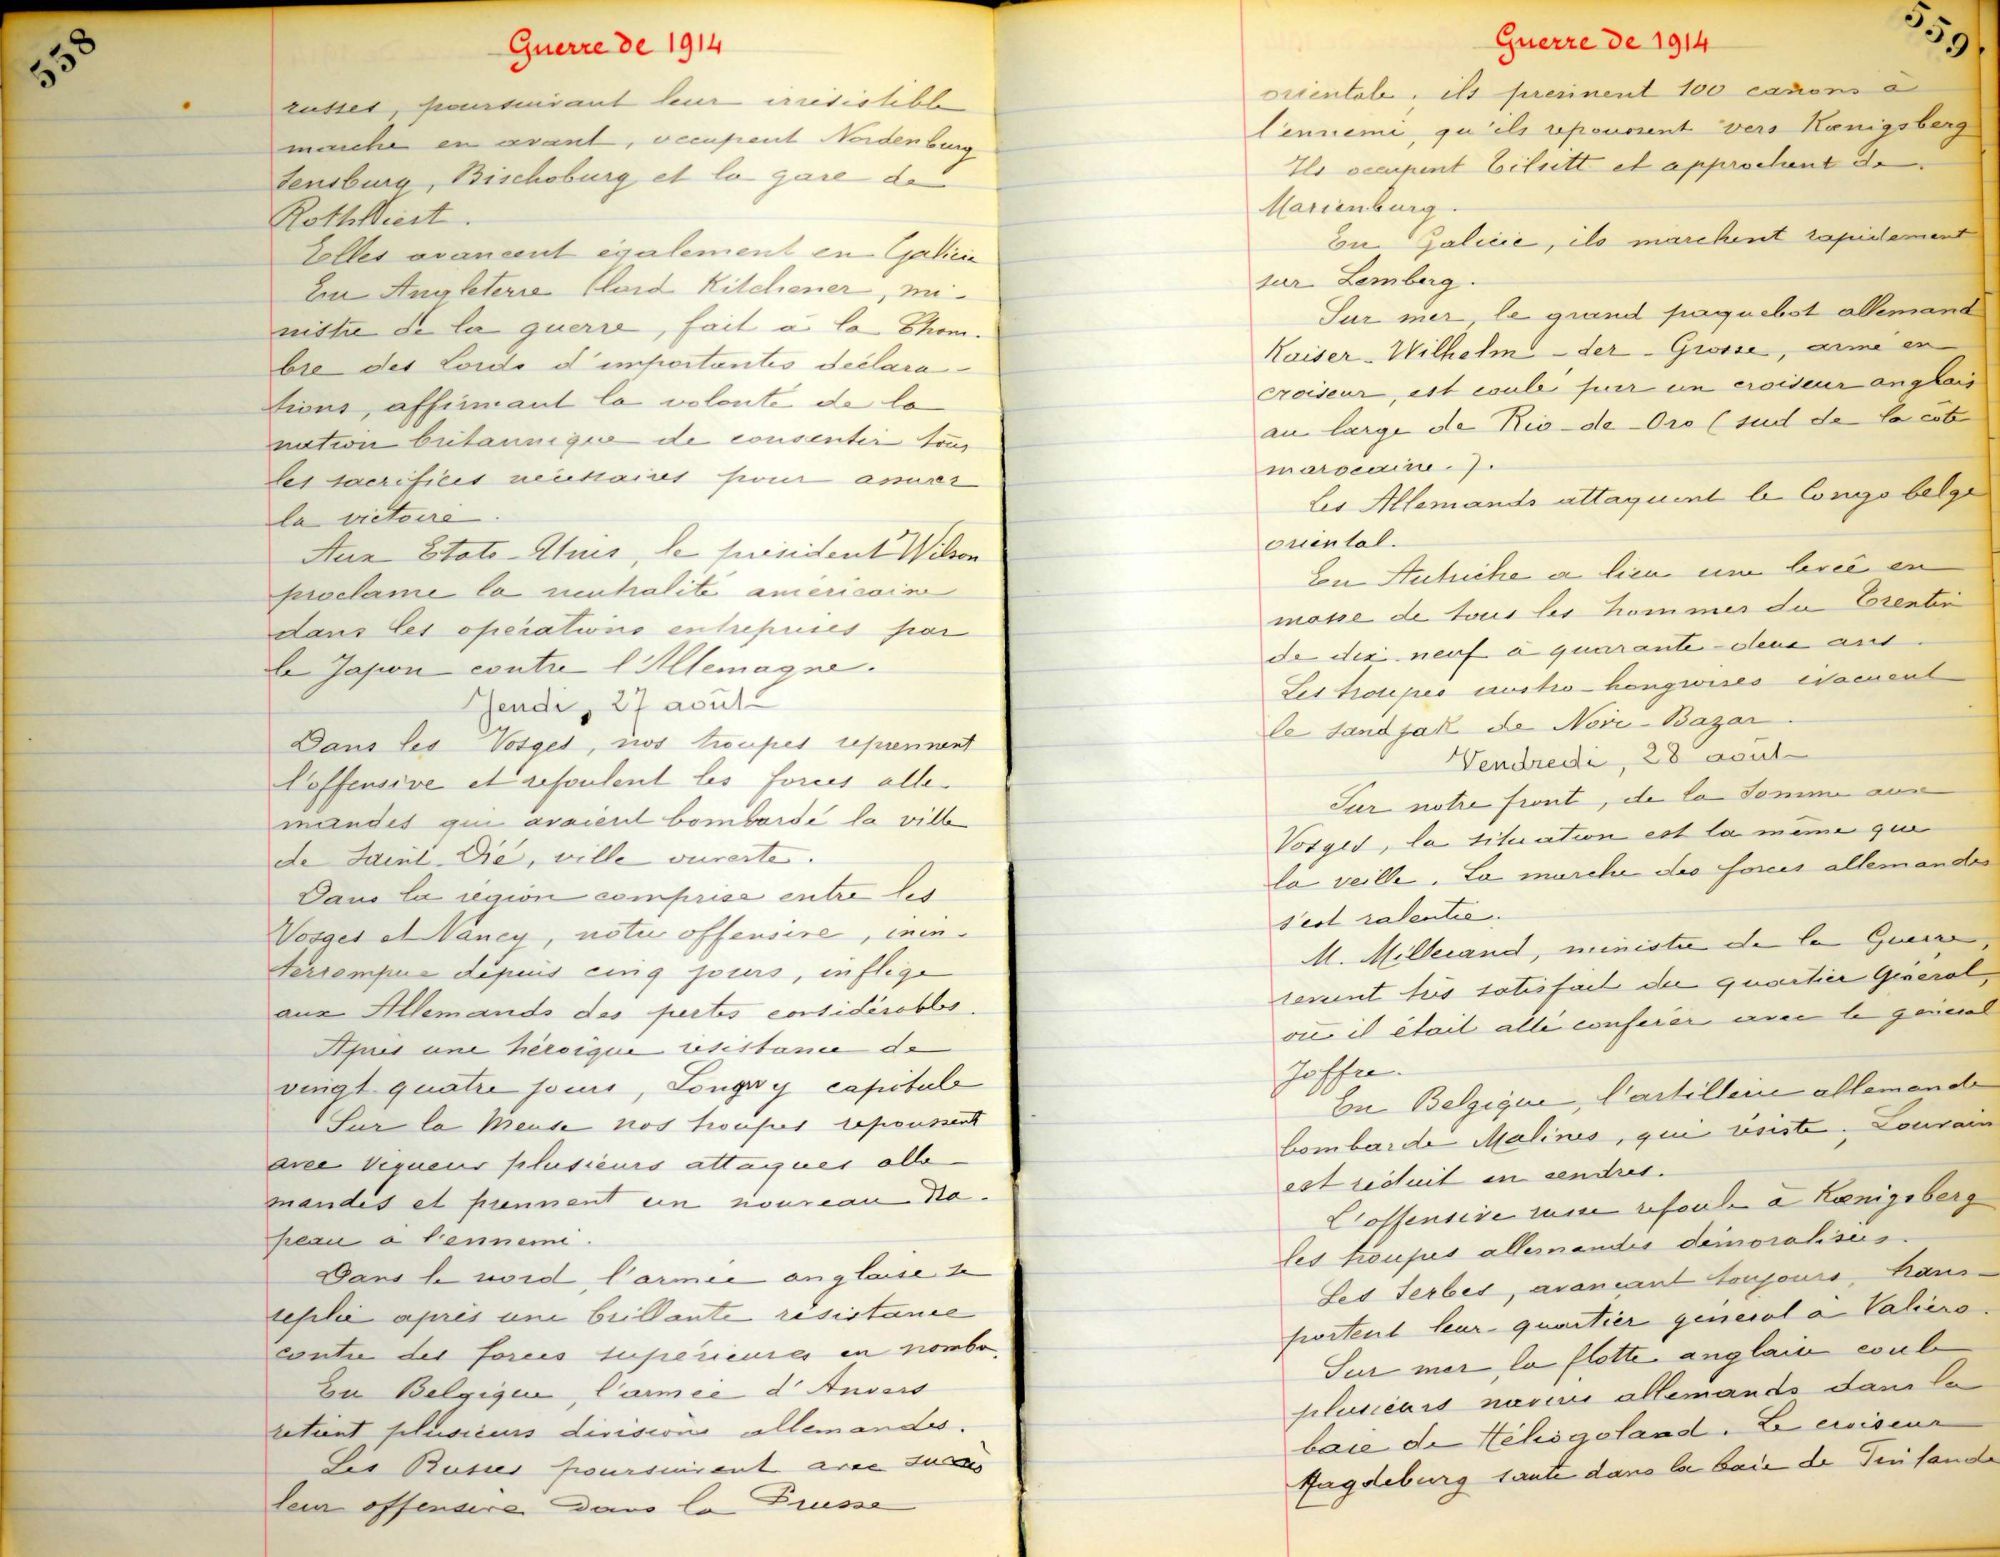 558
Guerre de 1914
russes, poursuivant leur irrésistible
marche en avant, occupent Nordenburg
Sensburg, Bischoburg et la gare de
Rothfliest.
Elles avancent également en Galicie
En Angleterre (lord Kitchener, mi-
nistre de la guerre, fait à la Cham-
bre des Lords d'importantes déclara-
tions, affirmant la volonté de la
nation britannique de consentir tous
les sacrifices nécessaires pour assurer
la victoire.
Aux Etats-Unis, le président Wilson
proclame la neutralité américaine
dans les opérations entreprises par
le Japon contre l'Allemagne.
Jeudi, 27 août
Dans les Vosges, nos troupes reprennent
l'offensive et refoulent les forces alle-
mandes qui avaient bombardé la ville
de Saint-Dié, ville ouverte.
Dans la région comprise entre les
Vosges et Nancy, notre offensive, inin-
terrompue depuis cinq jours, inflige
aux Allemands des pertes considérables.
Après une héroïque résistance de
vingt quatre jours, Longwy capitule
Sur la Meuse nos troupes repoussent
avec vigueur plusieurs attaques alle-
mandes et prennent un nouveau dra-
peau à l'ennemi.
Dans le nord, l'armée anglaise se
replie après une brillante résistance
contre des forces supérieures en nombre.
En Belgique, l'armée d'Anvers
retient plusieurs divisions allemandes.
Les Russes poursuivent avec succès
leur offensive dans la Prusse
559.
Guerre de 1914
orientale; ils prennent 100 canons à
l'ennemi, qu'ils repoussent vers Kœnigsberg
Ils occupent Tilsitt et approchent de
Marienburg.
En Galicie, ils marchent rapidement
sur Lemberg.
Sur mer, le grand paquebot allemand
Kaiser-Wilhelm-der-Grosse, armé en
croiseur, est coulé par un croiseur anglais
au large de Rio-de-Oro (sud de la côte
marocaine.).
Les Allemands attaquent le Congo belge
oriental.
En Autriche a lieu une levée en
masse de tous les hommes du Trentin
de dix-neuf à quarante-deux ans.
Les troupes austro-hongroises évacuent
le sandjak de Novi-Bazar.
Vendredi, 28 août
Sur notre front, de la Somme aux
Vosges, la situation est la même que
la veille. La marche des forces allemandes
s'est ralentie.
M. Millerand, ministre de la Guerre,
revient très satisfait du quartier général,
où il était allé conférer avec le général
Joffre.
En Belgique, l'artillerie allemande
bombarde Malines, qui résiste; Louvain
est réduit en cendres.
L'offensive russe refoule à Kœnigsberg
les troupes allemandes démoralisées.
Les Serbes, avançant toujours, trans-
portent leur quartier général à Valièro.
Sur mer, la flotte anglaise coule
plusieurs navires allemands dans la
baie de Héligoland. Le croiseur
Magdeburg saute dans la baie de Finlande